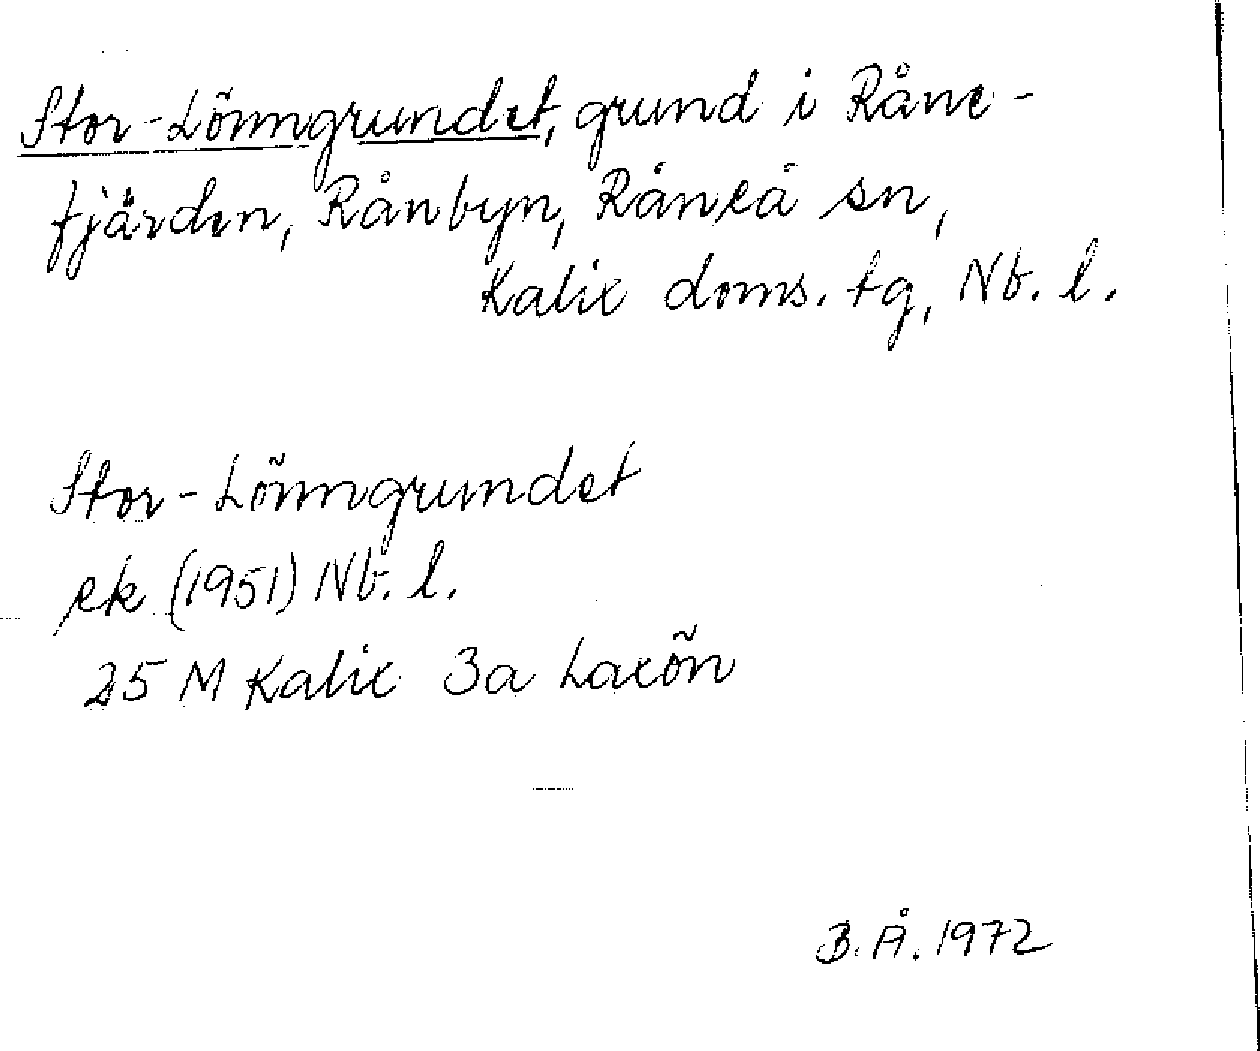 Stor-Lönngrundet, grund i Råne-
fjärden, Rånbyn, Råneå sn,
Kalix doms. tg, Nb. l.
Stor-Lönngrundet
ek (1951) Nb. l.
25 M Kalix 3a Laxön
B.Å. 1972